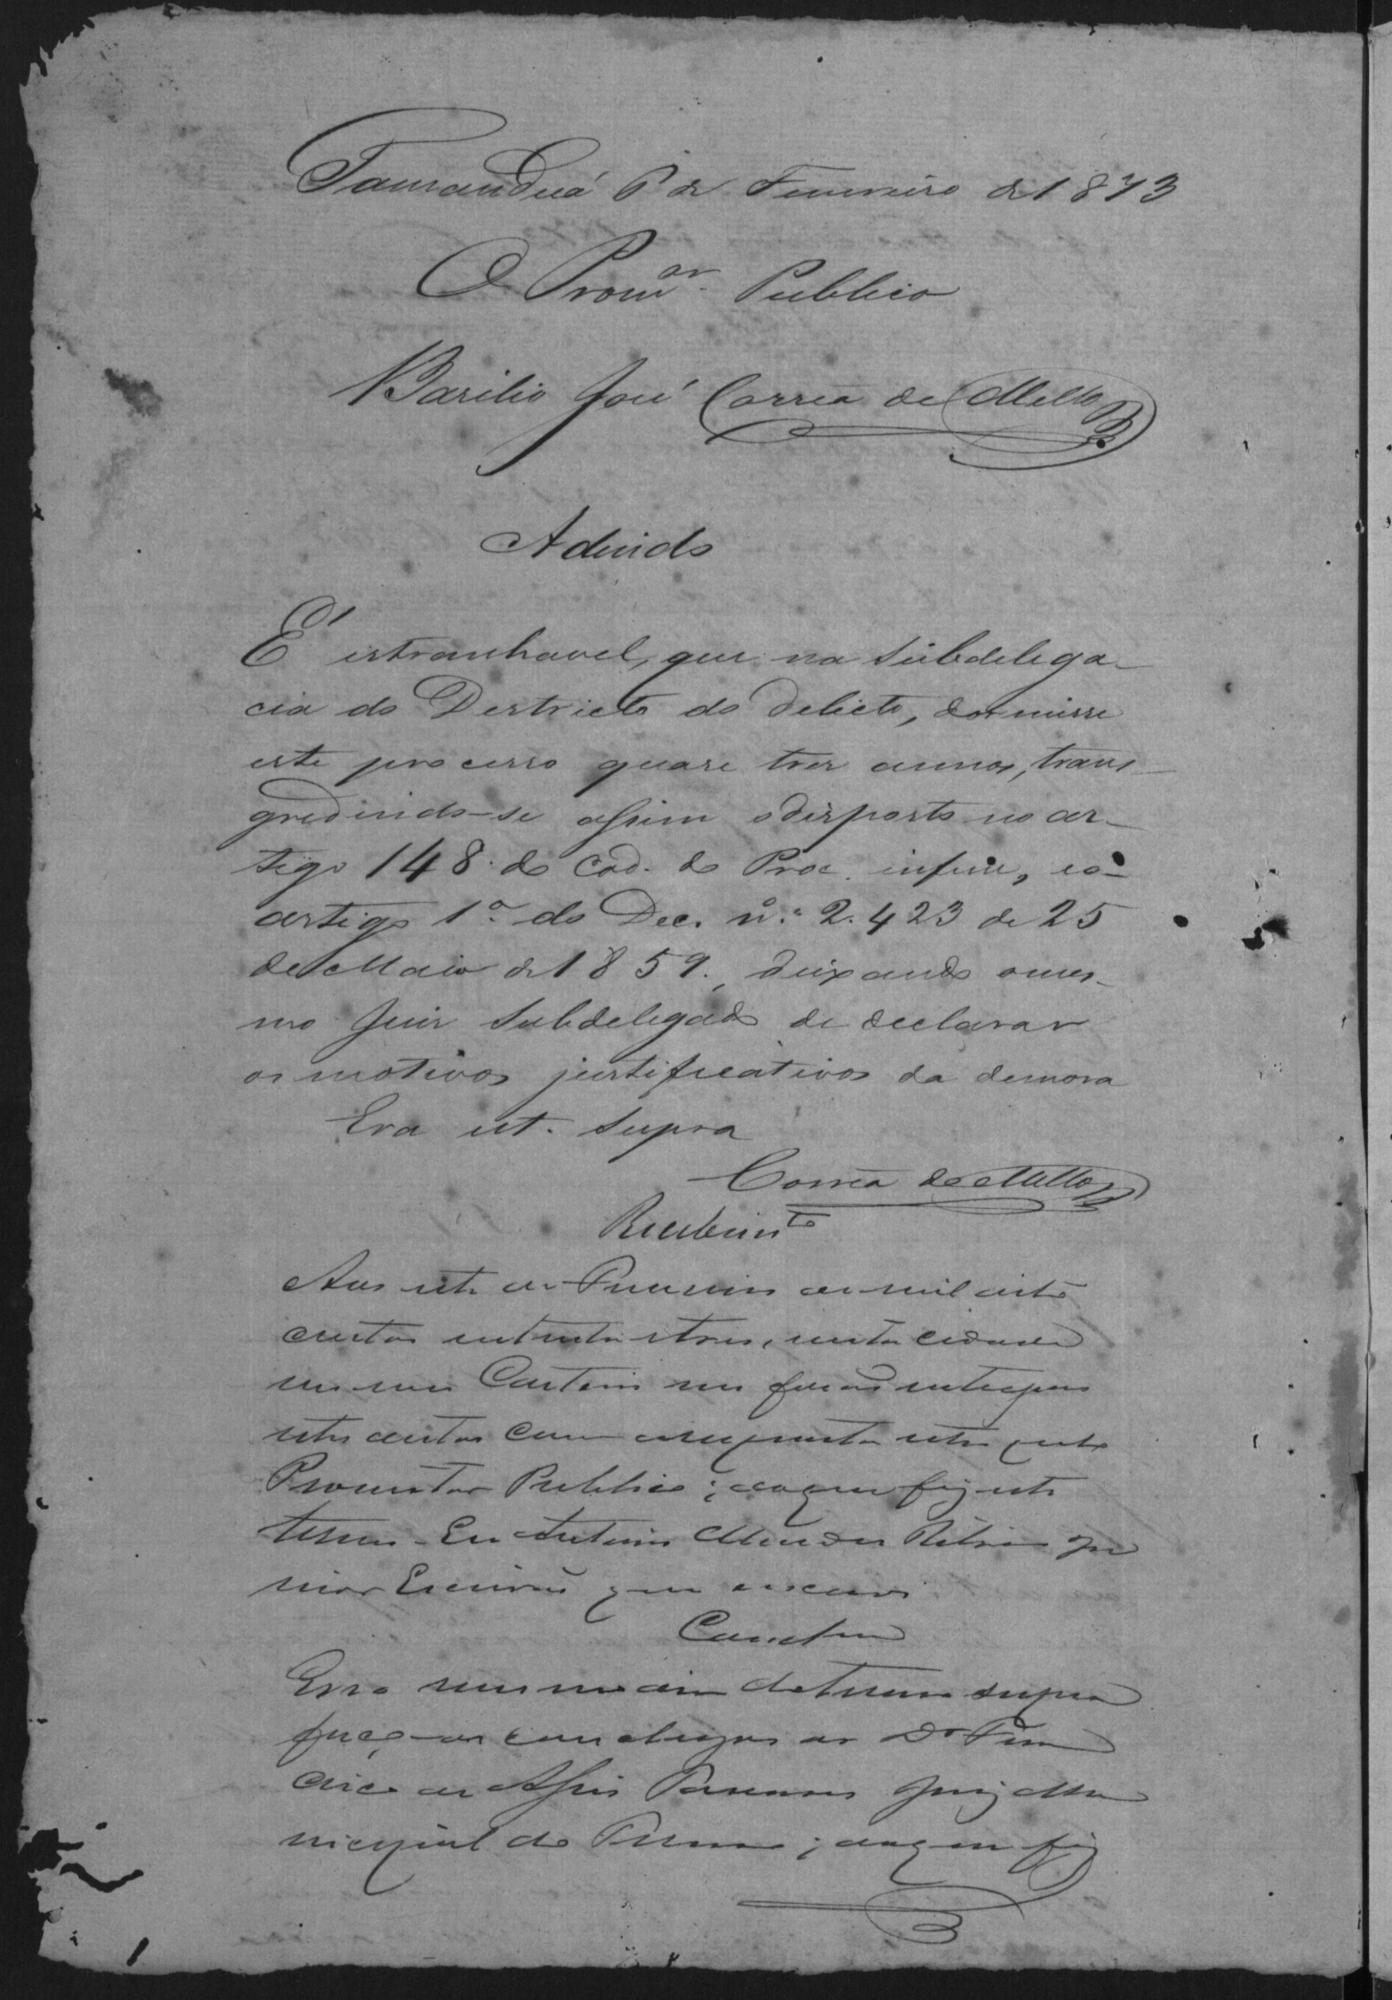 Tamanduá 6 de Fevereiro de 1873
O Promor. Publico
Basilio José Corrêa de Mello
Adendo
É estranhavel, que na Subdelega-
cia do Destricto do delicto, dormisse
este processo quase tres annos, trans-
gredindo-se assim o disposto no ar-
tigo 148 do Cod. do Proc. infine, e o
artigo 1º do Dec. nº 2.423 de 25
de Maio de 1859, deixando o mes-
mo Juiz Subdelegado de declarar
os motivos justificativos da demora
Era ut. supra
Corrêa de Mello
Recebimto
Aos sete de Fevereiro de mil oito
centos setenta e tres, nesta cidade
em meu Cartorio me forão entregues
estes autos com a resposta retro pelo
Promotor Publico; do que fiz este
termo. Eu Antonio Mendes Ribeiro Ju
nior Escrivão que escrevi
Concluso
E no mesmo dia do termo supra
faço-os conclusos ao Dr Fran
cisco de Assis Juiz Mu
nicipal do Termo; do que fiz